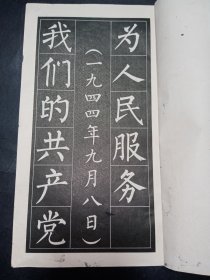 为人民服务
(一九四四年九月八日)
我们的共产党